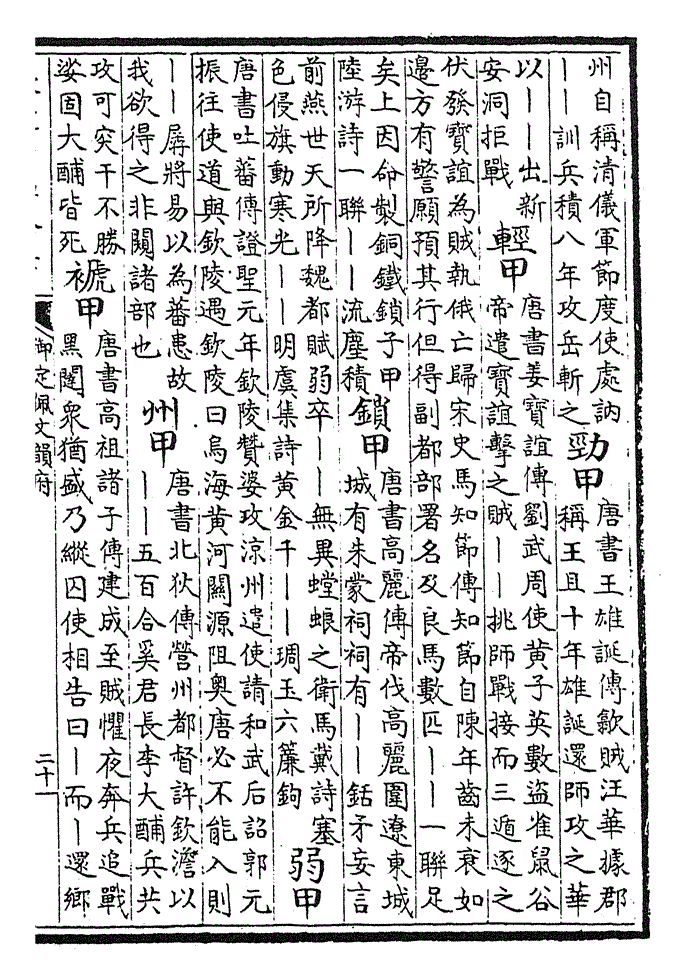 州自稱清儀軍節度使處訥
——訓兵積八年攻岳斬之
勁甲
唐書王雄誕傳歙賊汪華據郡
稱王且十年雄誕還師攻之華
以——出新
安洞拒戰
輕甲
唐書姜寶誼傳劉武周使黃子英數盜雀鼠谷
帝遣寶誼擊之賊——挑師戰接而三遁逐之
伏發寶誼為賊執俄亡歸宋史馬知節傳知節自陳年齒未衰如
邊方有警願預其行但得副都部署名及良馬數匹——一聯足
矣上因命製銅鐵鎖子甲
陸游詩一聯——流塵積
鎖甲
唐書高麗傳帝伐高麗圍遼東城
城有朱蒙祠祠有——銛矛妄言
前燕世天所降魏都賦弱卒——無異螳蜋之衛馬戴詩塞
色侵旗動寒光——明虞集詩黃金千——琱玉六簾鉤
弱甲
唐書吐蕃傳證聖元年欽陵贊婆攻涼州遣使請和武后詔郭元
振往使道與欽陵遇欽陵曰烏海黃河關源阻奧唐必不能入則
——孱將易以為蕃患故
我欲得之非闚諸部也
州甲
唐書北狄傳營州都督許欽澹以
——五百合奚君長李大酺兵共
攻可突干不勝
娑固大酺皆死
褫甲
唐書高祖諸子傳建成至賊懼夜奔兵追戰
黑闥衆猶盛乃縱囚使相告曰——而—還鄉
御定佩文韻府
二十一